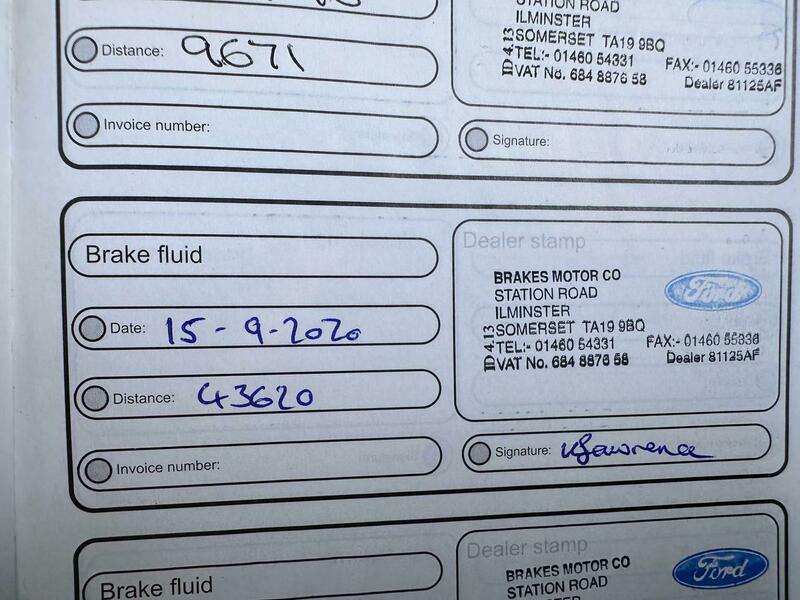 Distance: 9671
Invoice number:
STATION ROAD
ILMINSTER
SOMERSET TA19 9BQ
TEL:- 01460 54331 FAX:- 01460 55336
VAT No. 684 8876 58 Dealer 81125AF
Signature:
Brake fluid
Date: 15-9-2020
Distance: 43620
Invoice number:
Dealer stamp
BRAKES MOTOR CO
STATION ROAD
ILMINSTER
SOMERSET TA19 9BQ
TEL:- 01460 54331 FAX:- 01460 55336
VAT No. 684 8876 58 Dealer 81125AF
ID 4.13
Ford
Signature:
Brake fluid
Dealer stamp
BRAKES MOTOR CO
STATION ROAD
Ford